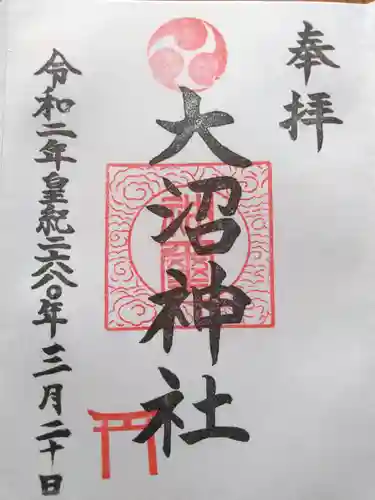 奉拝
大沼神社
令和二年皇紀二六八〇年三月二十日